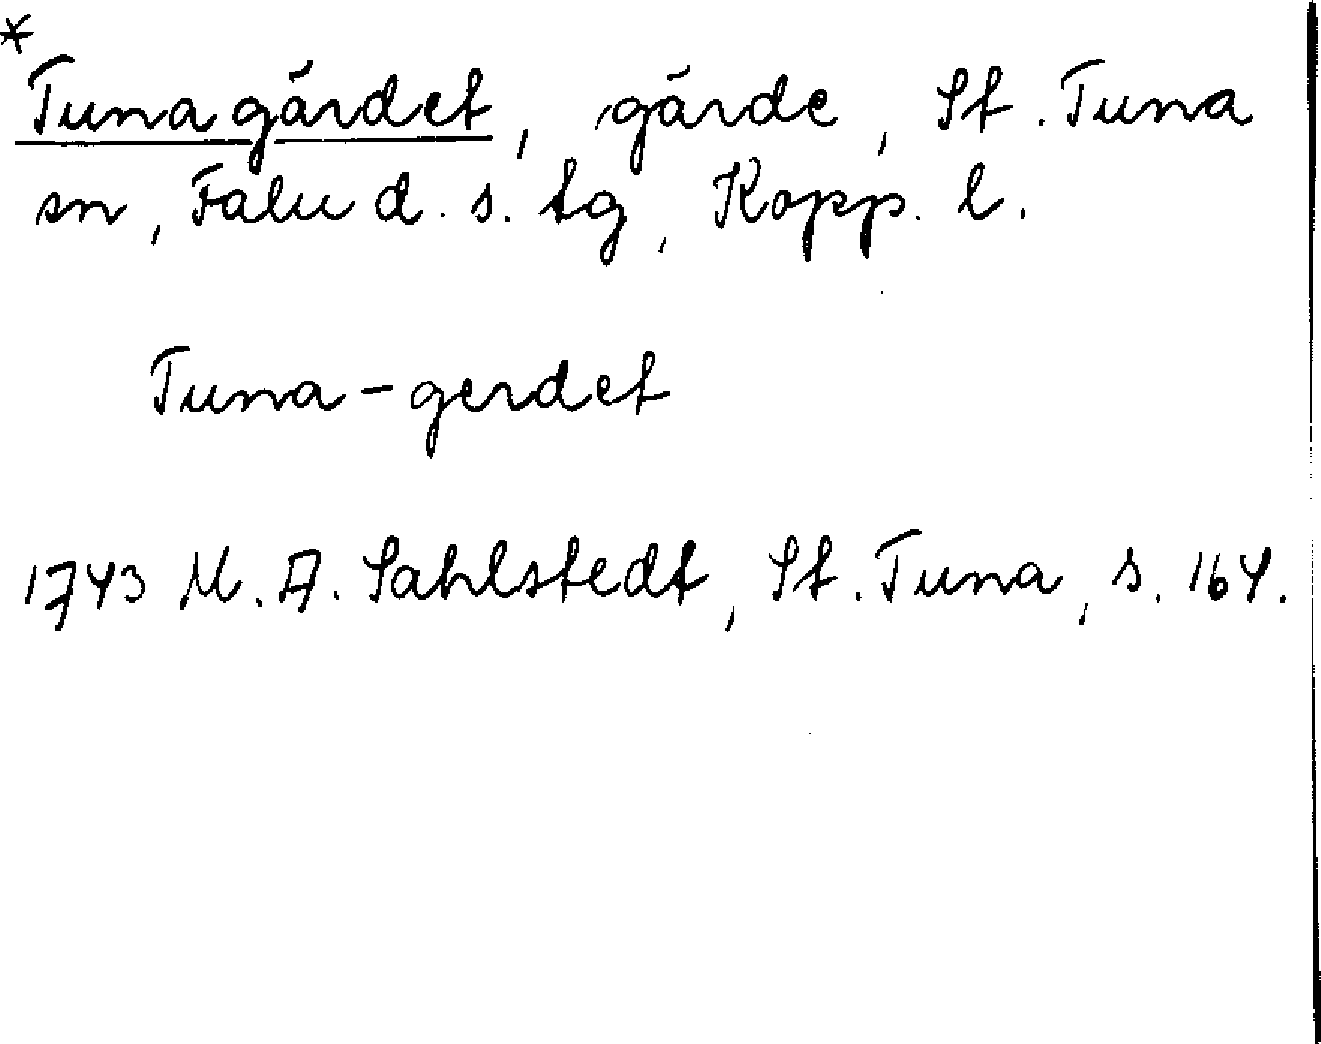 *
Tunagärdet, gärde, St. Tuna
sn, Falu d. s. tg, Kopp. l.
Tuna-gerdet
1743 M. A. Sahlstedt, St. Tuna, s. 164.